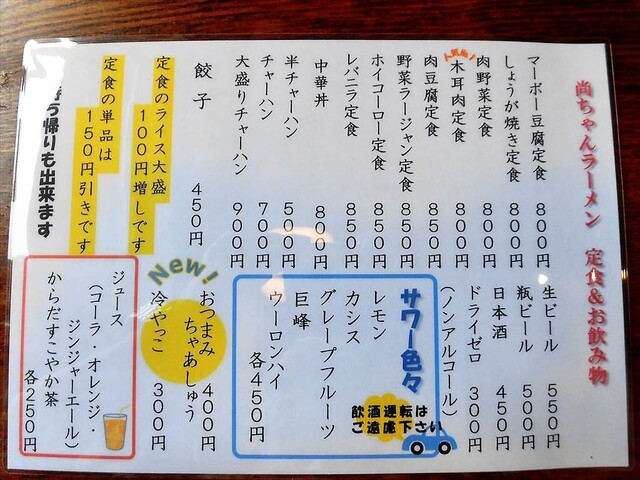 尚ちゃんラーメン 定食&お飲み物
マーボー豆腐定食 800円
しょうが焼き定食 800円
肉野菜定食 800円
人気No.1
木耳肉定食 800円
肉豆腐定食 850円
野菜ラージャン定食 850円
ホイコーロー定食 850円
レバニラ定食 850円
中華丼 800円
半チャーハン 500円
チャーハン 700円
大盛りチャーハン 900円
餃子 450円
定食のライス大盛
100円増しです
定食の単品は
150円引きです
帰りも出来ます
生ビール 550円
瓶ビール 500円
日本酒 450円
ドライゼロ 300円
(ノンアルコール)
サワー色々
レモン
カシス
グレープフルーツ
巨峰
ウーロンハイ
各450円
飲酒運転は
ご遠慮下さい
New!
おつまみ
ちゃあしゅう 400円
冷やっこ 300円
ジュース
(コーラ・オレンジ・
ジンジャーエール)
からだすこやか茶
各250円